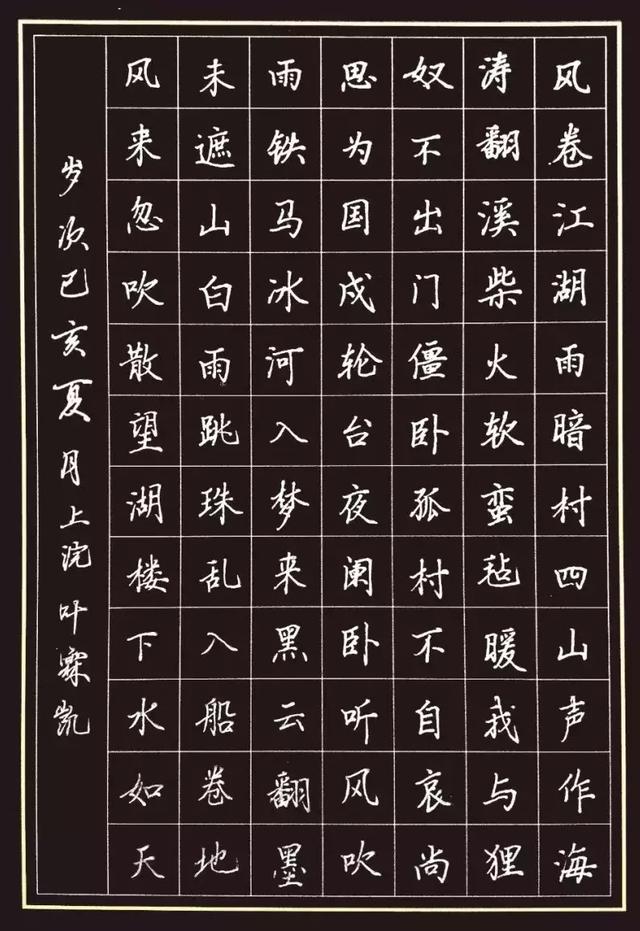 风卷江湖雨暗村四山声作海
涛翻溪柴火软蛮毡暖我与狸
奴不出门僵卧孤村不自哀尚
思为国戍轮台夜阑卧听风吹
雨铁马冰河入梦来黑云翻墨
未遮山白雨跳珠乱入船卷地
风来忽吹散望湖楼下水如天
岁次己亥夏月上浣叶霖凯